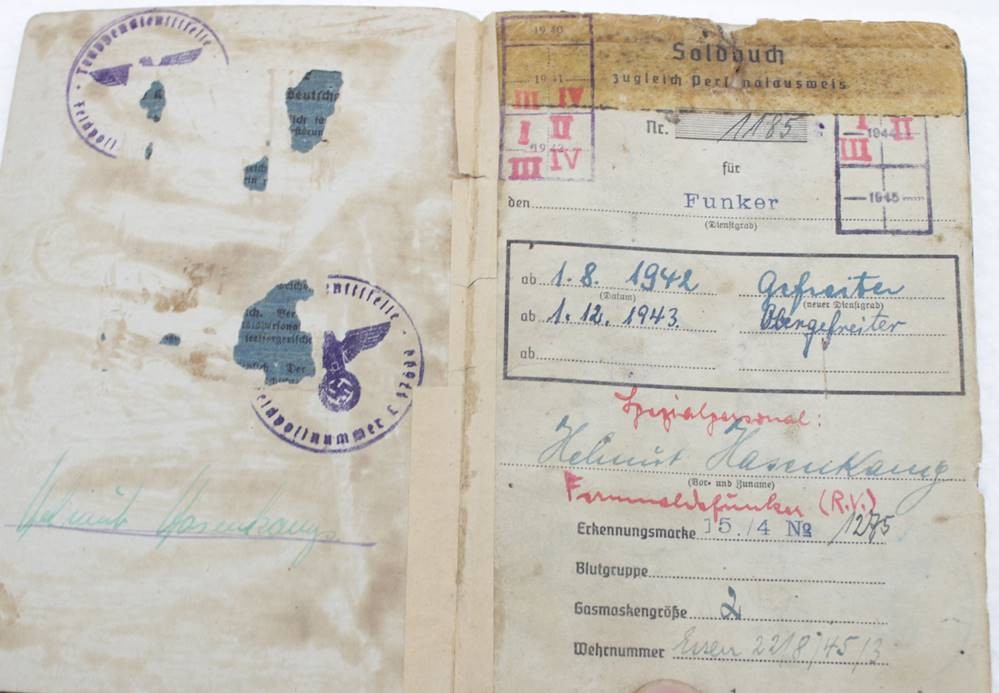 Truppendienststelle
Feldpost
Deutsche
Feldpostnummer
Helmut Hasenkamp
1940
1941
III IV
I II
1942
III IV
Soldbuch
zugleich Personalausweis
Nr. 1185
I II
1944
III
1945
für
den Funker
(Dienstgrad)
ab 1.8. 1942 Gefreiter
(Datum) (neuer Dienstgrad)
ab 1.12.1943. Obergefreiter
ab
Spezialpersonal:
Helmut Hasenkamp
(Vor- und Zuname)
Fernmeldefunker (R.V.)
Erkennungsmarke 15./4 No 1275
Blutgruppe
Gasmaskengröße 2
Wehrnummer Essen 22/8/45/3